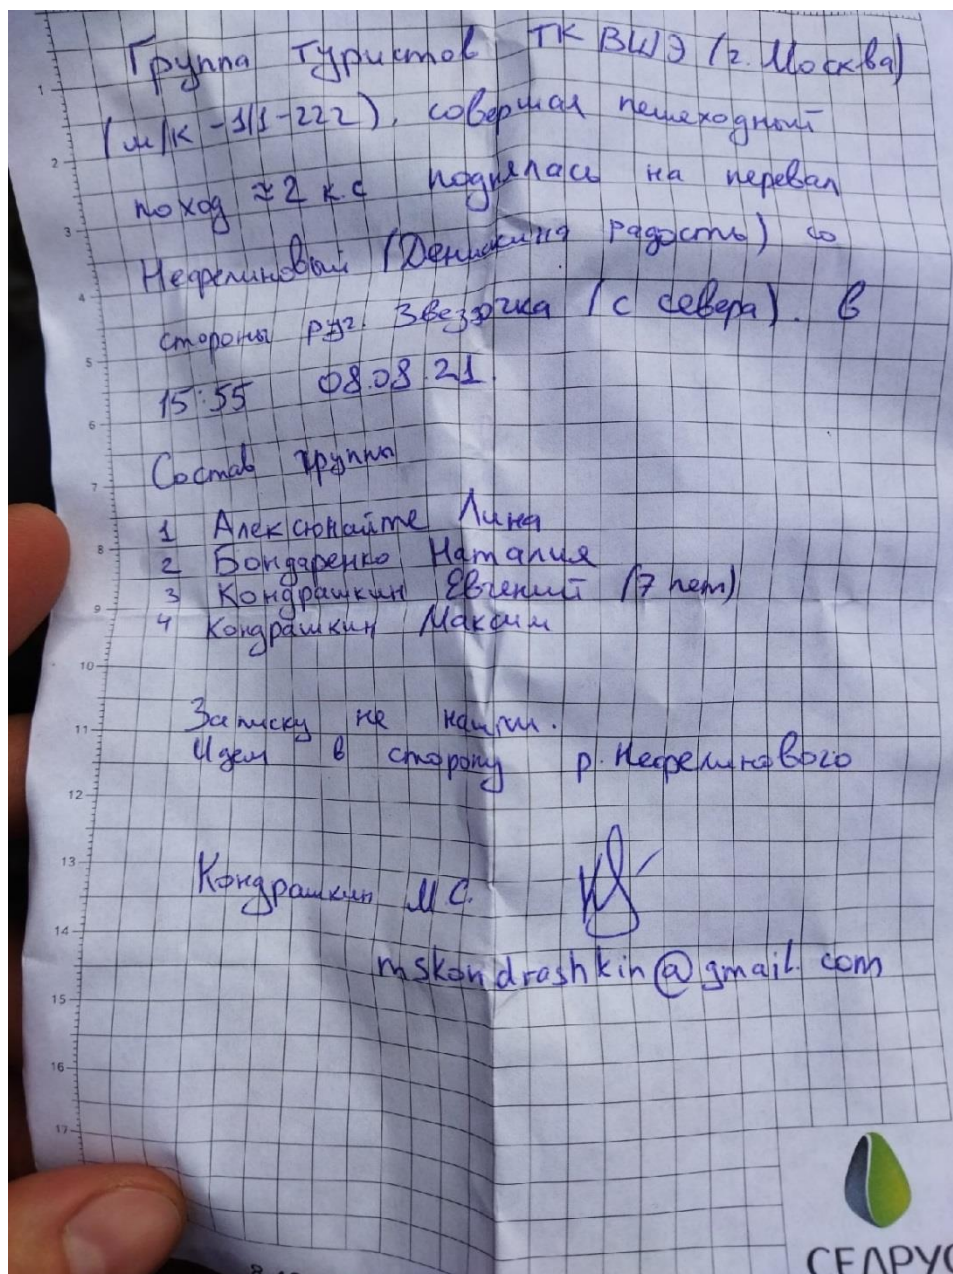 Группа туристов ТК ВШЭ (г. Москва)
(м/к -1/1-222), совершая пешеходный
поход ≈2 к.с поднялась на перевал
Нефелиновый (Денискина радость) со
стороны руч. Звездочка (с севера). в
15:55 08.08.21.
Состав группы
1 Алексюнайте Лина
2 Бондаренко Наталия
3 Кондрашкин Евгений (7 лет)
4 Кондрашкин Максим
Записку не нашли.
Идем в сторону р. Нефелинового
Кондрашкин М.С.
mskondrashkin@gmail.com
1
2
3
4
5
6
7
8
9
10
11
12
13
14
15
16
17
СЕЛРУС